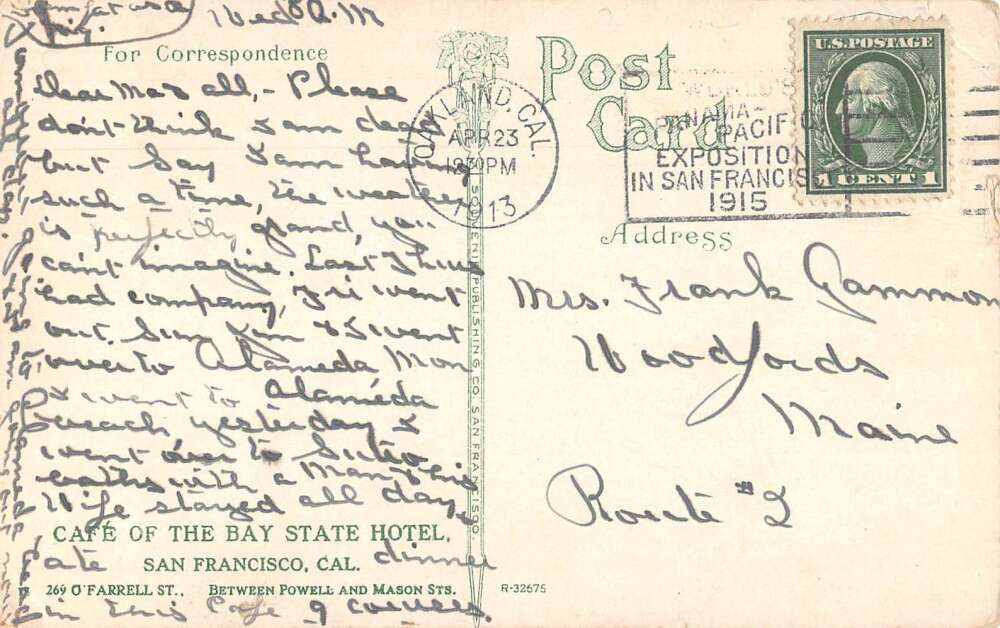 Wed A.M
For Correspondence
Dear Ma & all,- Please
don't think I am dead
but say I am having
such a time, the weather
is perfectly grand, you
can't imagine. Last Thurs
had company, Fri went
out. Sun Jim & I went
over to Alameda Mon
& went to Alameda
beach yesterday &
went over to Sutro
baths with a Man & his
Wife stayed all day,
CAFÉ OF THE BAY STATE HOTEL,
SAN FRANCISCO, CAL.
ate dinner
269 O'FARRELL ST., BETWEEN POWELL AND MASON STS.
in this Cafe 9 courses.
Post
Card
OAKLAND, CAL.
APR 23
12 30 PM
1913
WORLD'S
PANAMA-
PACIFIC
EXPOSITION
IN SAN FRANCISCO
1915
U.S. POSTAGE
1 CENT 1
PUBLISHING CO. SAN FRANCISCO.
Address
Mrs. Frank Gammon
Woodfords
Maine
Route #2
R-32675